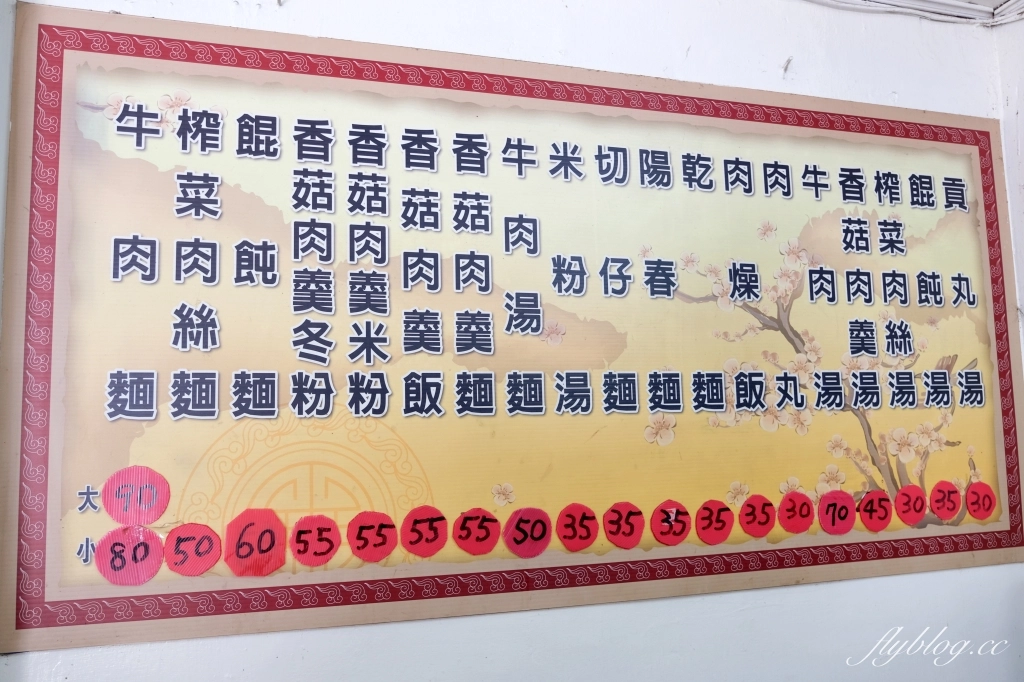 牛肉麵
榨菜肉絲麵
餛飩麵
香菇肉羹冬粉
香菇肉羹米粉
香菇肉羹飯
香菇肉羹麵
牛肉湯麵
米粉湯
切仔麵
陽春麵
乾麵
肉燥飯
肉丸
牛肉湯
香菇肉羹湯
榨菜肉絲湯
餛飩湯
貢丸湯
大 90
小 80 50 60 55 55 55 55 50 35 35 35 35 35 30 70 45 30 35 30
flyblog.cc